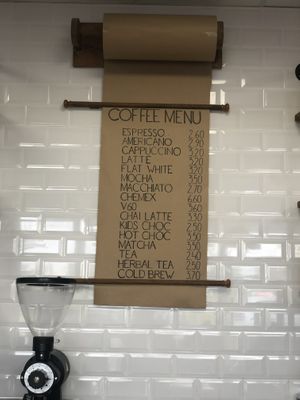 COFFEE MENU
ESPRESSO 2.60
AMERICANO 2.90
CAPPUCCINO 3.20
LATTE 3.20
FLAT WHITE 3.20
MOCHA 3.50
MACCHIATO 2.70
CHEMEX 6.60
V60 3.60
CHAI LATTE 3.30
KIDS CHOC 2.50
HOT CHOC 3.50
MATCHA 3.50
TEA 2.40
HERBAL TEA 2.50
COLD BREW 3.70